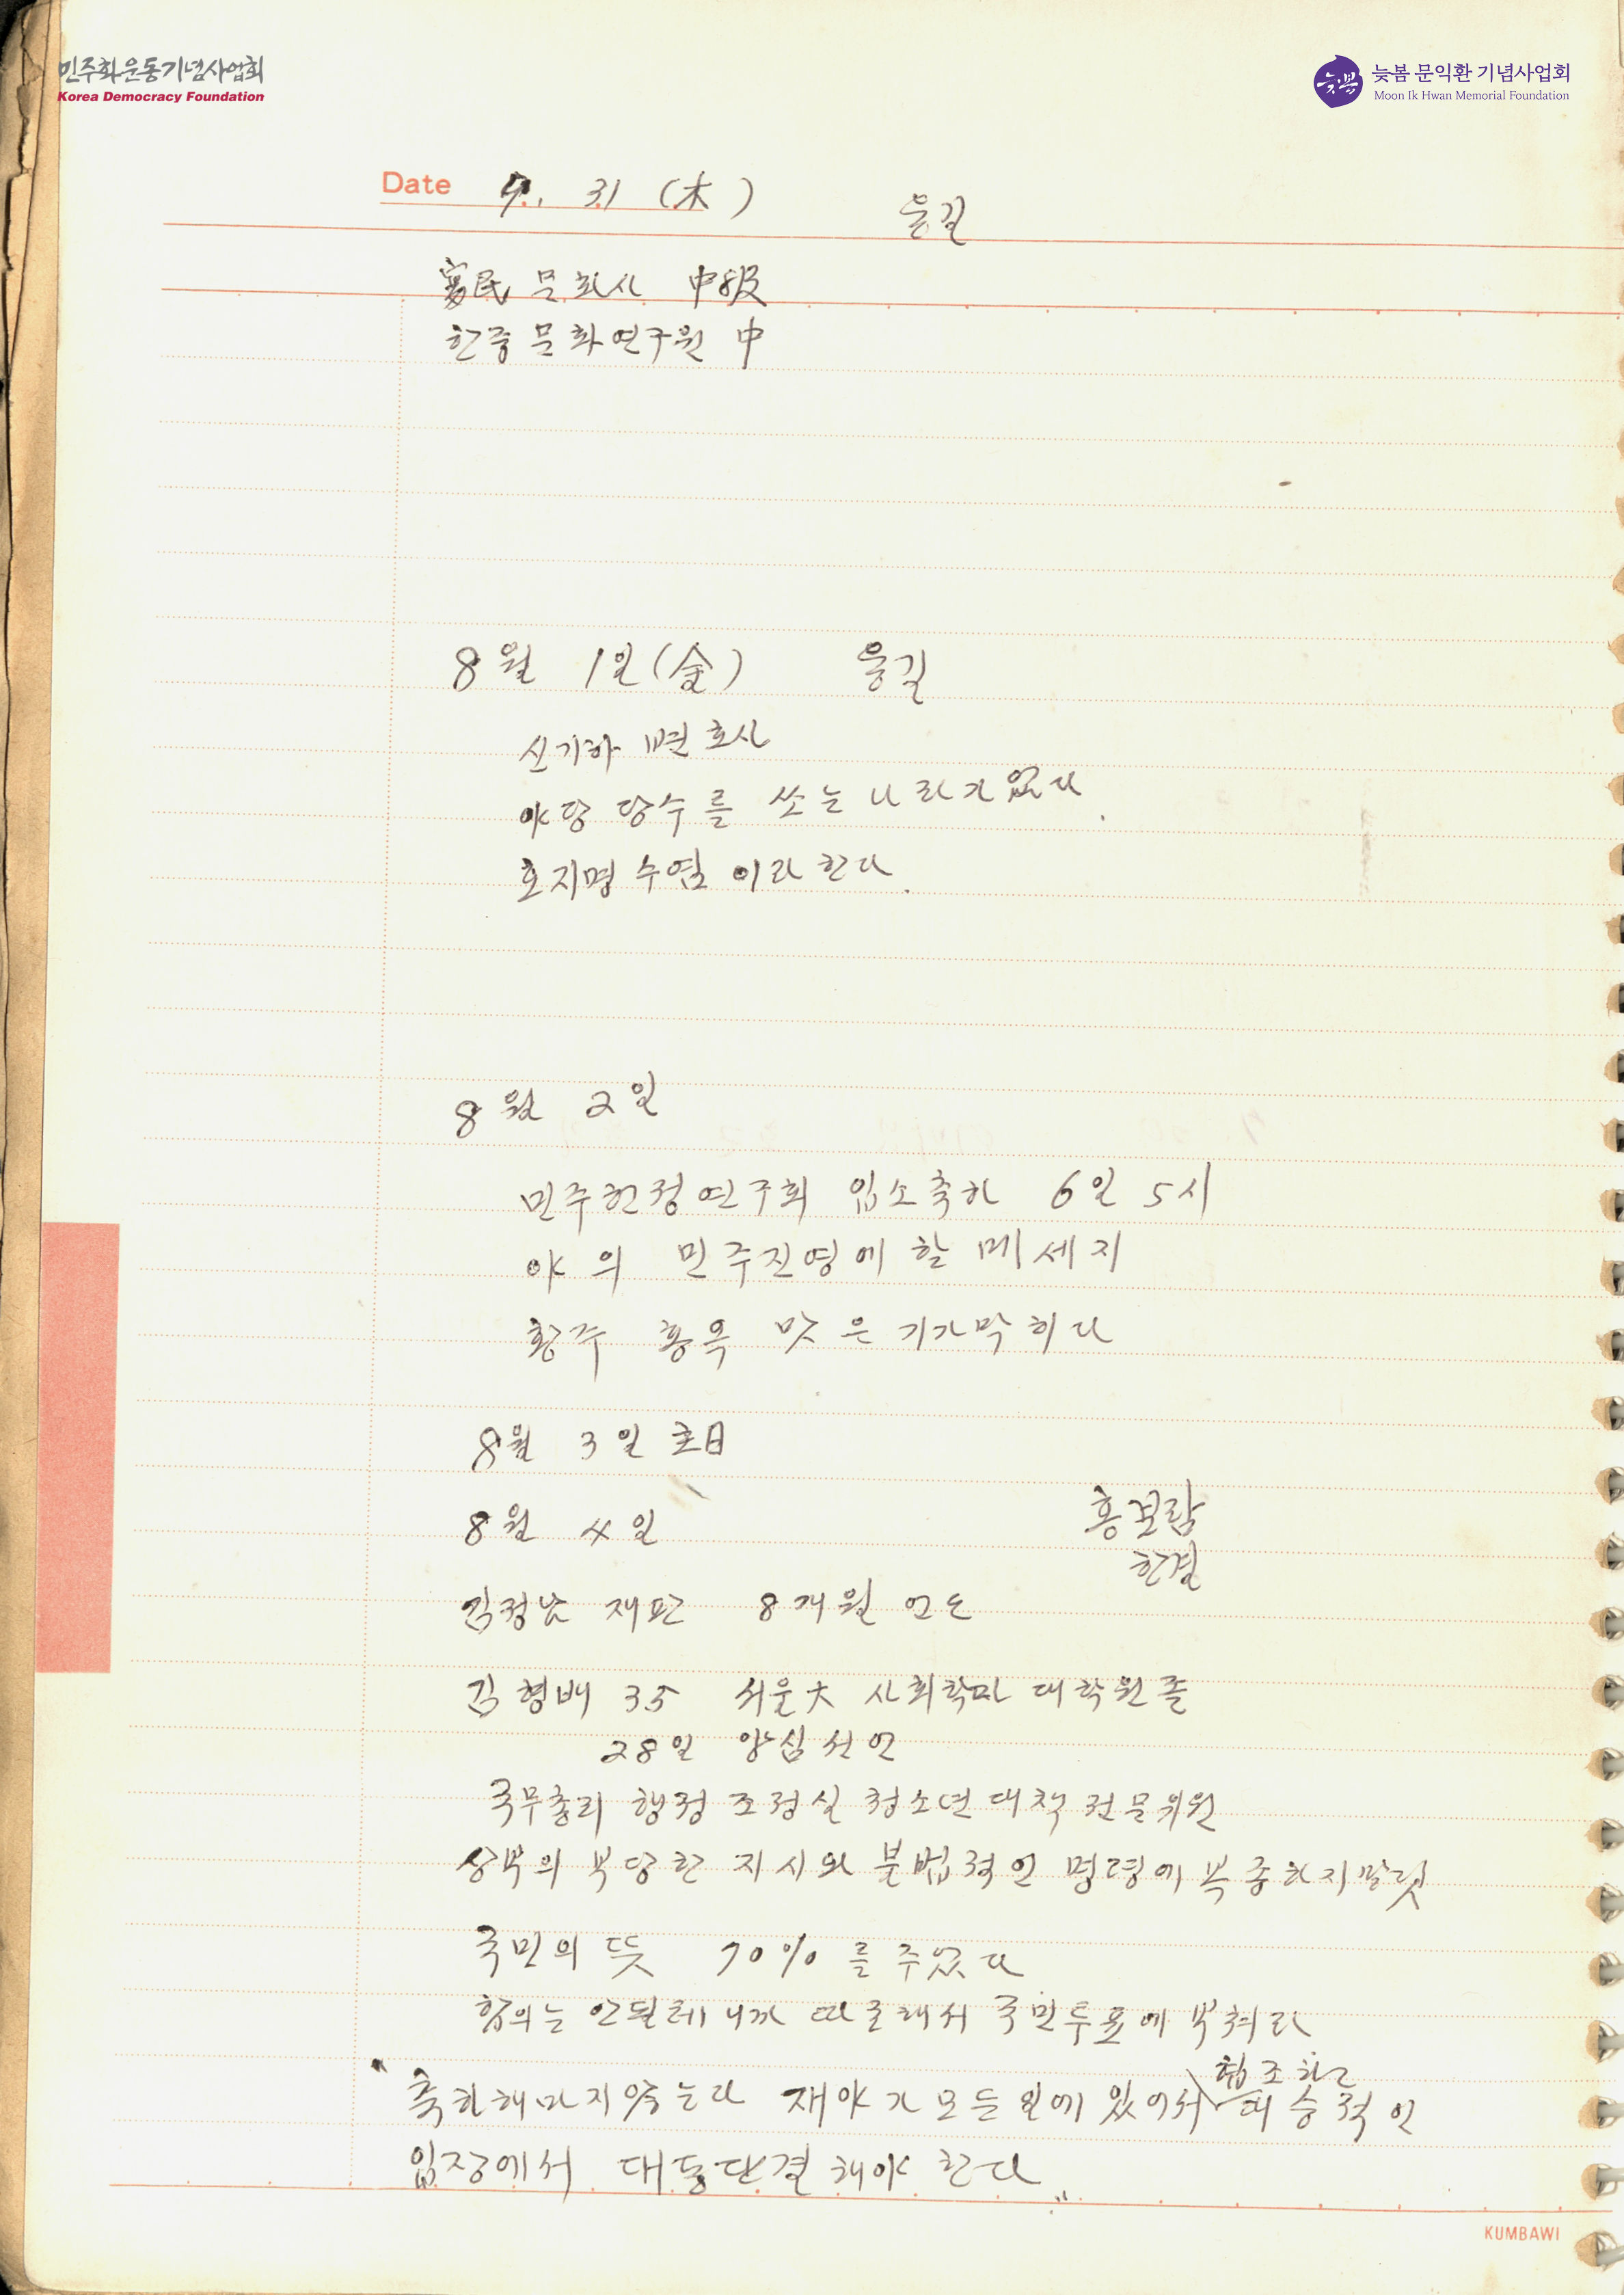 민주화운동기념사업회
Korea Democracy Foundation
늦봄
늦봄 문익환 기념사업회
Moon Ik Hwan Memorial Foundation
Date 7. 31 (木)
문길
民 문화사 中級
한중문화연구원 中
8월 1일(金) 문길
신기하 변호사
야당 당수를 쏘는 나라가 없다.
호지명 수염이라 한다.
8월 2일
민주헌정연구회 입소축하 6일 5시
야의 민주진영에 할 메세지
황주 홍옥 맛은 기가막히다
8월 3일 主日
8월 4일
홍보람
한결
김정남 재판 8개월 언도
김형배 35 서울大 사회학과 대학원졸
28일 양심선언
국무총리 행정 조정실 청소년대책 전문위원
상부의 부당한 지시와 불법적인 명령에 복종하지말것
국민의 뜻 70%를 주었다
합의는 안될테니까 따로해서 국민투표에 부쳐라
협조하고
"축하해마지않는다 재야가 모든 일에 있어서 대승적인
입장에서 대동단결해야 한다"
KUMBAWI